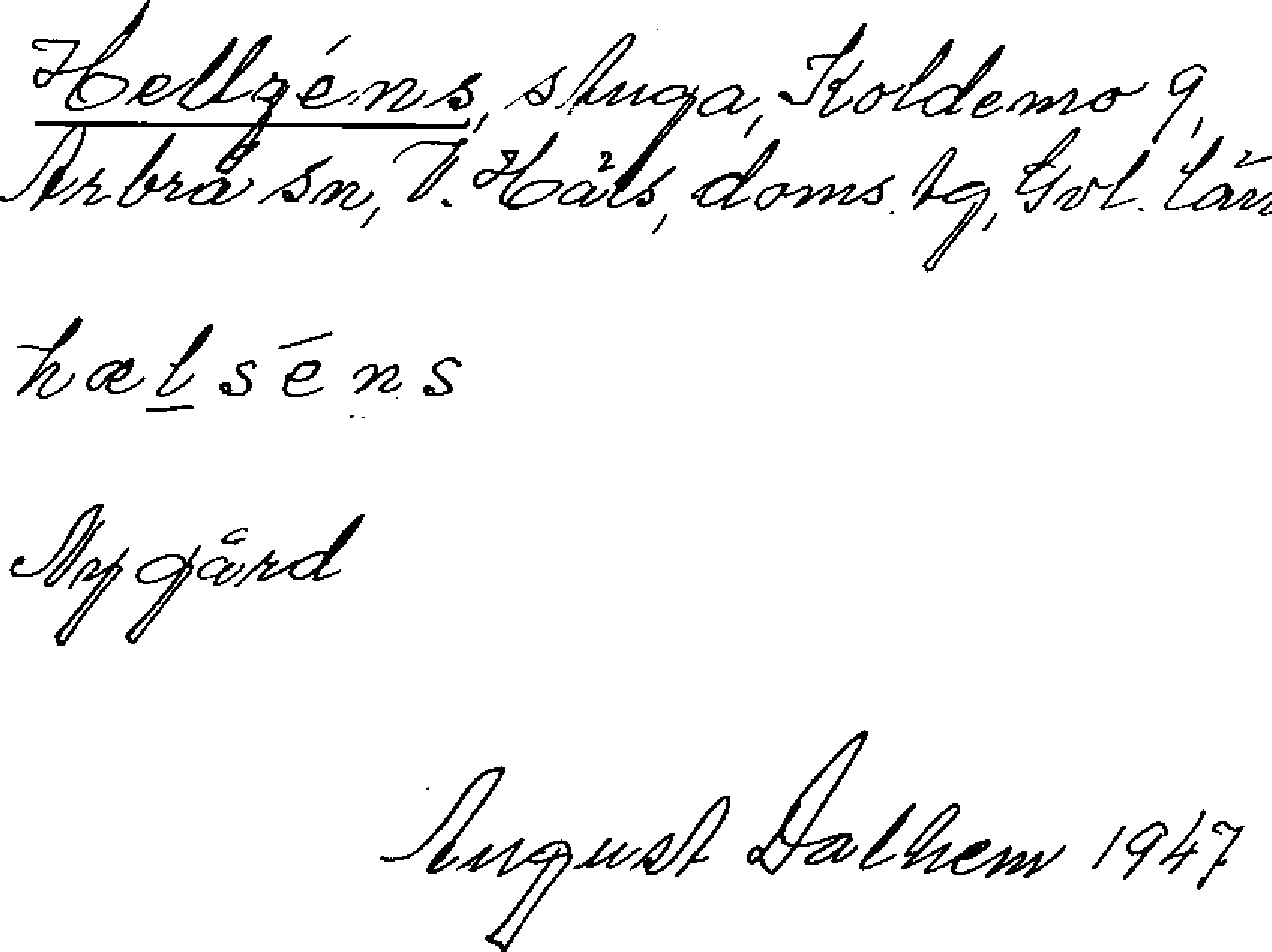 Hellzéns, stuga, Koldemo 9,
Arbrå sn, V. Häls, doms. tg, Gvl. län
hælséns
Nygård
August Dalhem 1947